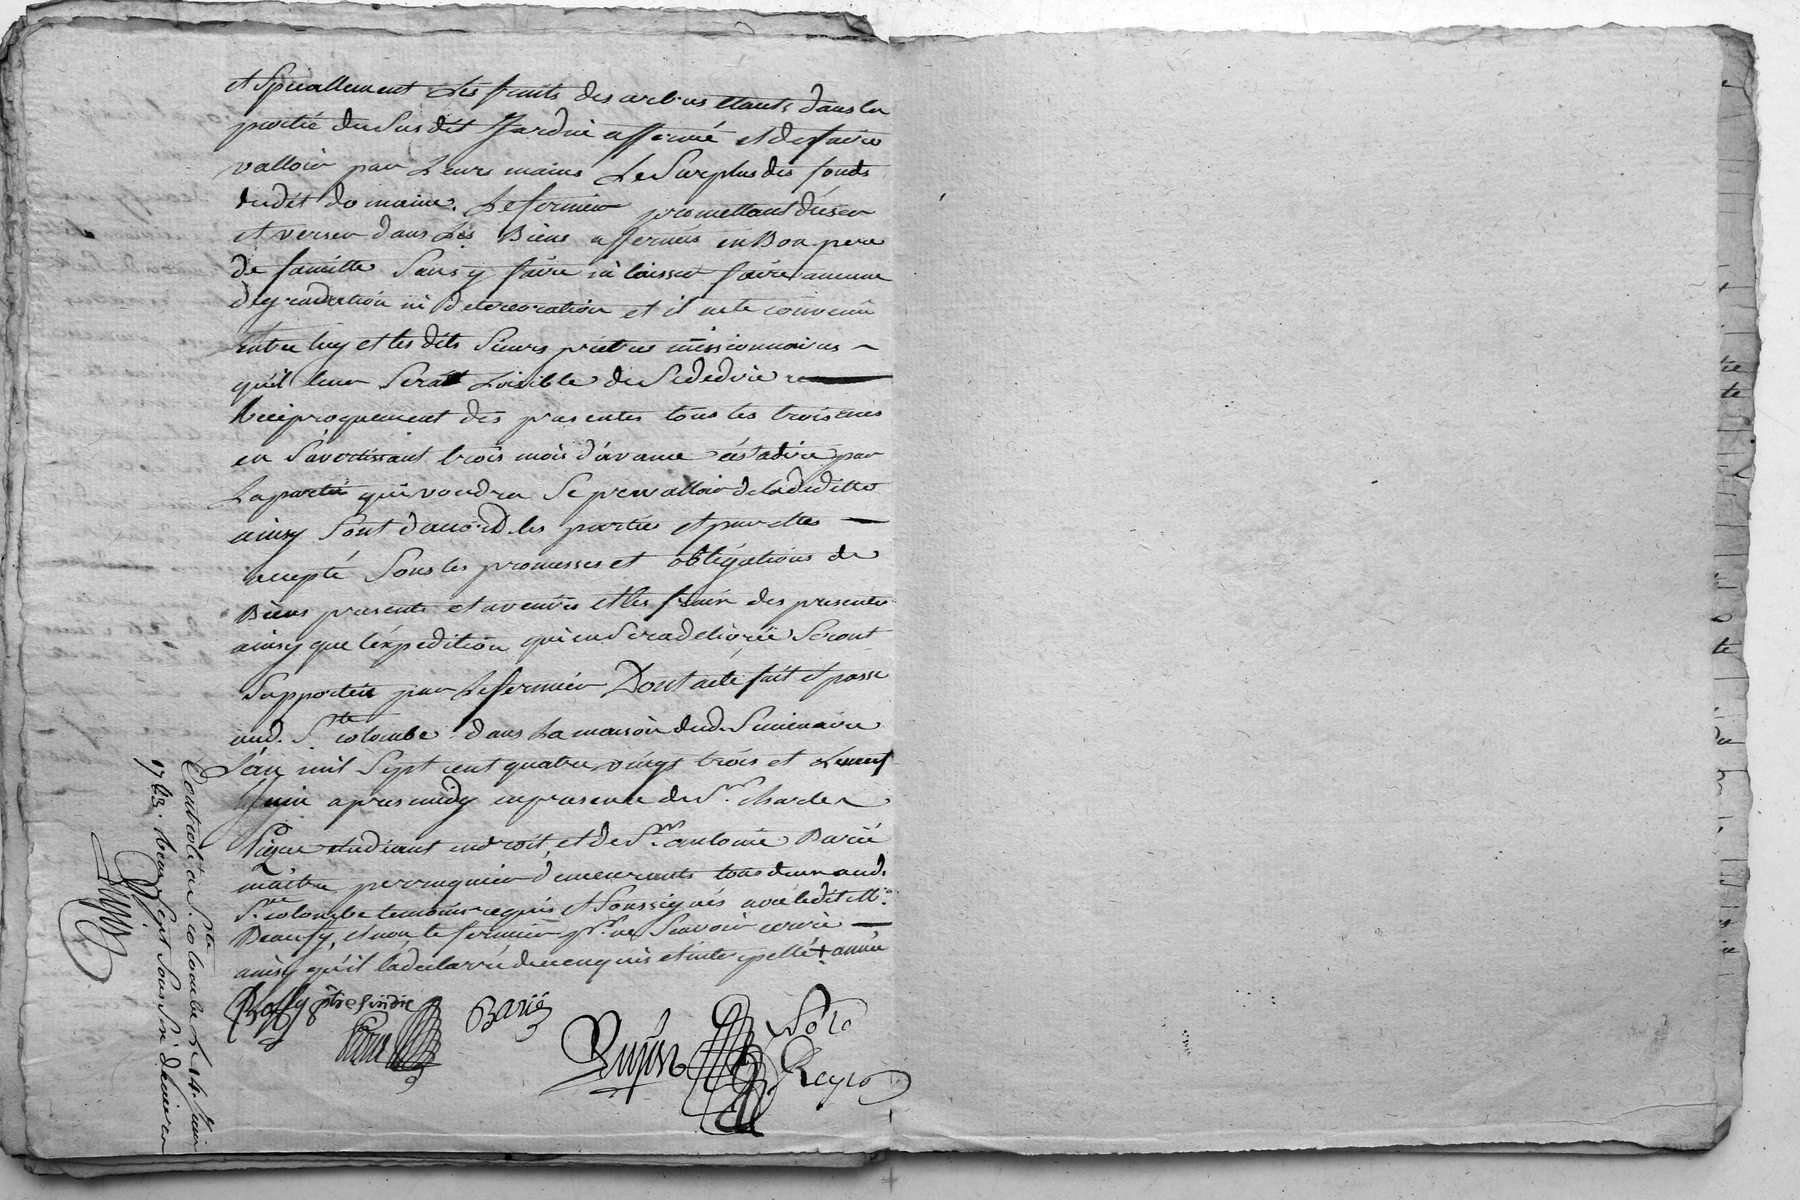 et Speciallement Les fruits des arbres etants dans la
partie du Susdit Jardin affermé et de faire
valloir par Leurs mains Le Surplus des fonds
dudit domaine. Le fermier promettant d'user
et verser dans Les Biens affermés en Bon pere
de famille Sans y faire ni laisser faire aucune
degradation ni deterioration et il a ete convenu
entre luy et les dits Sieurs pretres missionnaires
qu'il leur Serat Loisible de Se dedire
Reciproquement des presentes tous les trois ans
en S'avertissant trois mois d'avance c'est a dire par
La partie qui voudra Se prevalloir de la deditte
ainsy Sont d'accord les partie et par elles
accepté Sous les promesses et obligations de
Biens presents et avenirs et les frais des presentes
ainsy que l'expedition qui en Sera delivrée Seront
Supportée par Le fermier Dont acte fait et passé
aud. Ste colombe dans La maison dud. Seminaire
L'an mil Sept cent quatre vingt trois et Le neuf
Juin apres midy en presence de Sr. charles
etudiant en droit et de Sr. antoine Barié
maitre perruquier demeurants tous deux aud.
Ste colombe temoins requis et Soussignés avec ledit Mr.
et non le fermier pr. ne Scavoir ecrire
ainsy qu'il l'a declarré de ce enquis et interpellé +
ptre sindic
Barié
Contrôlé a Ste colombe Le 14. Juin
1783. Reçu